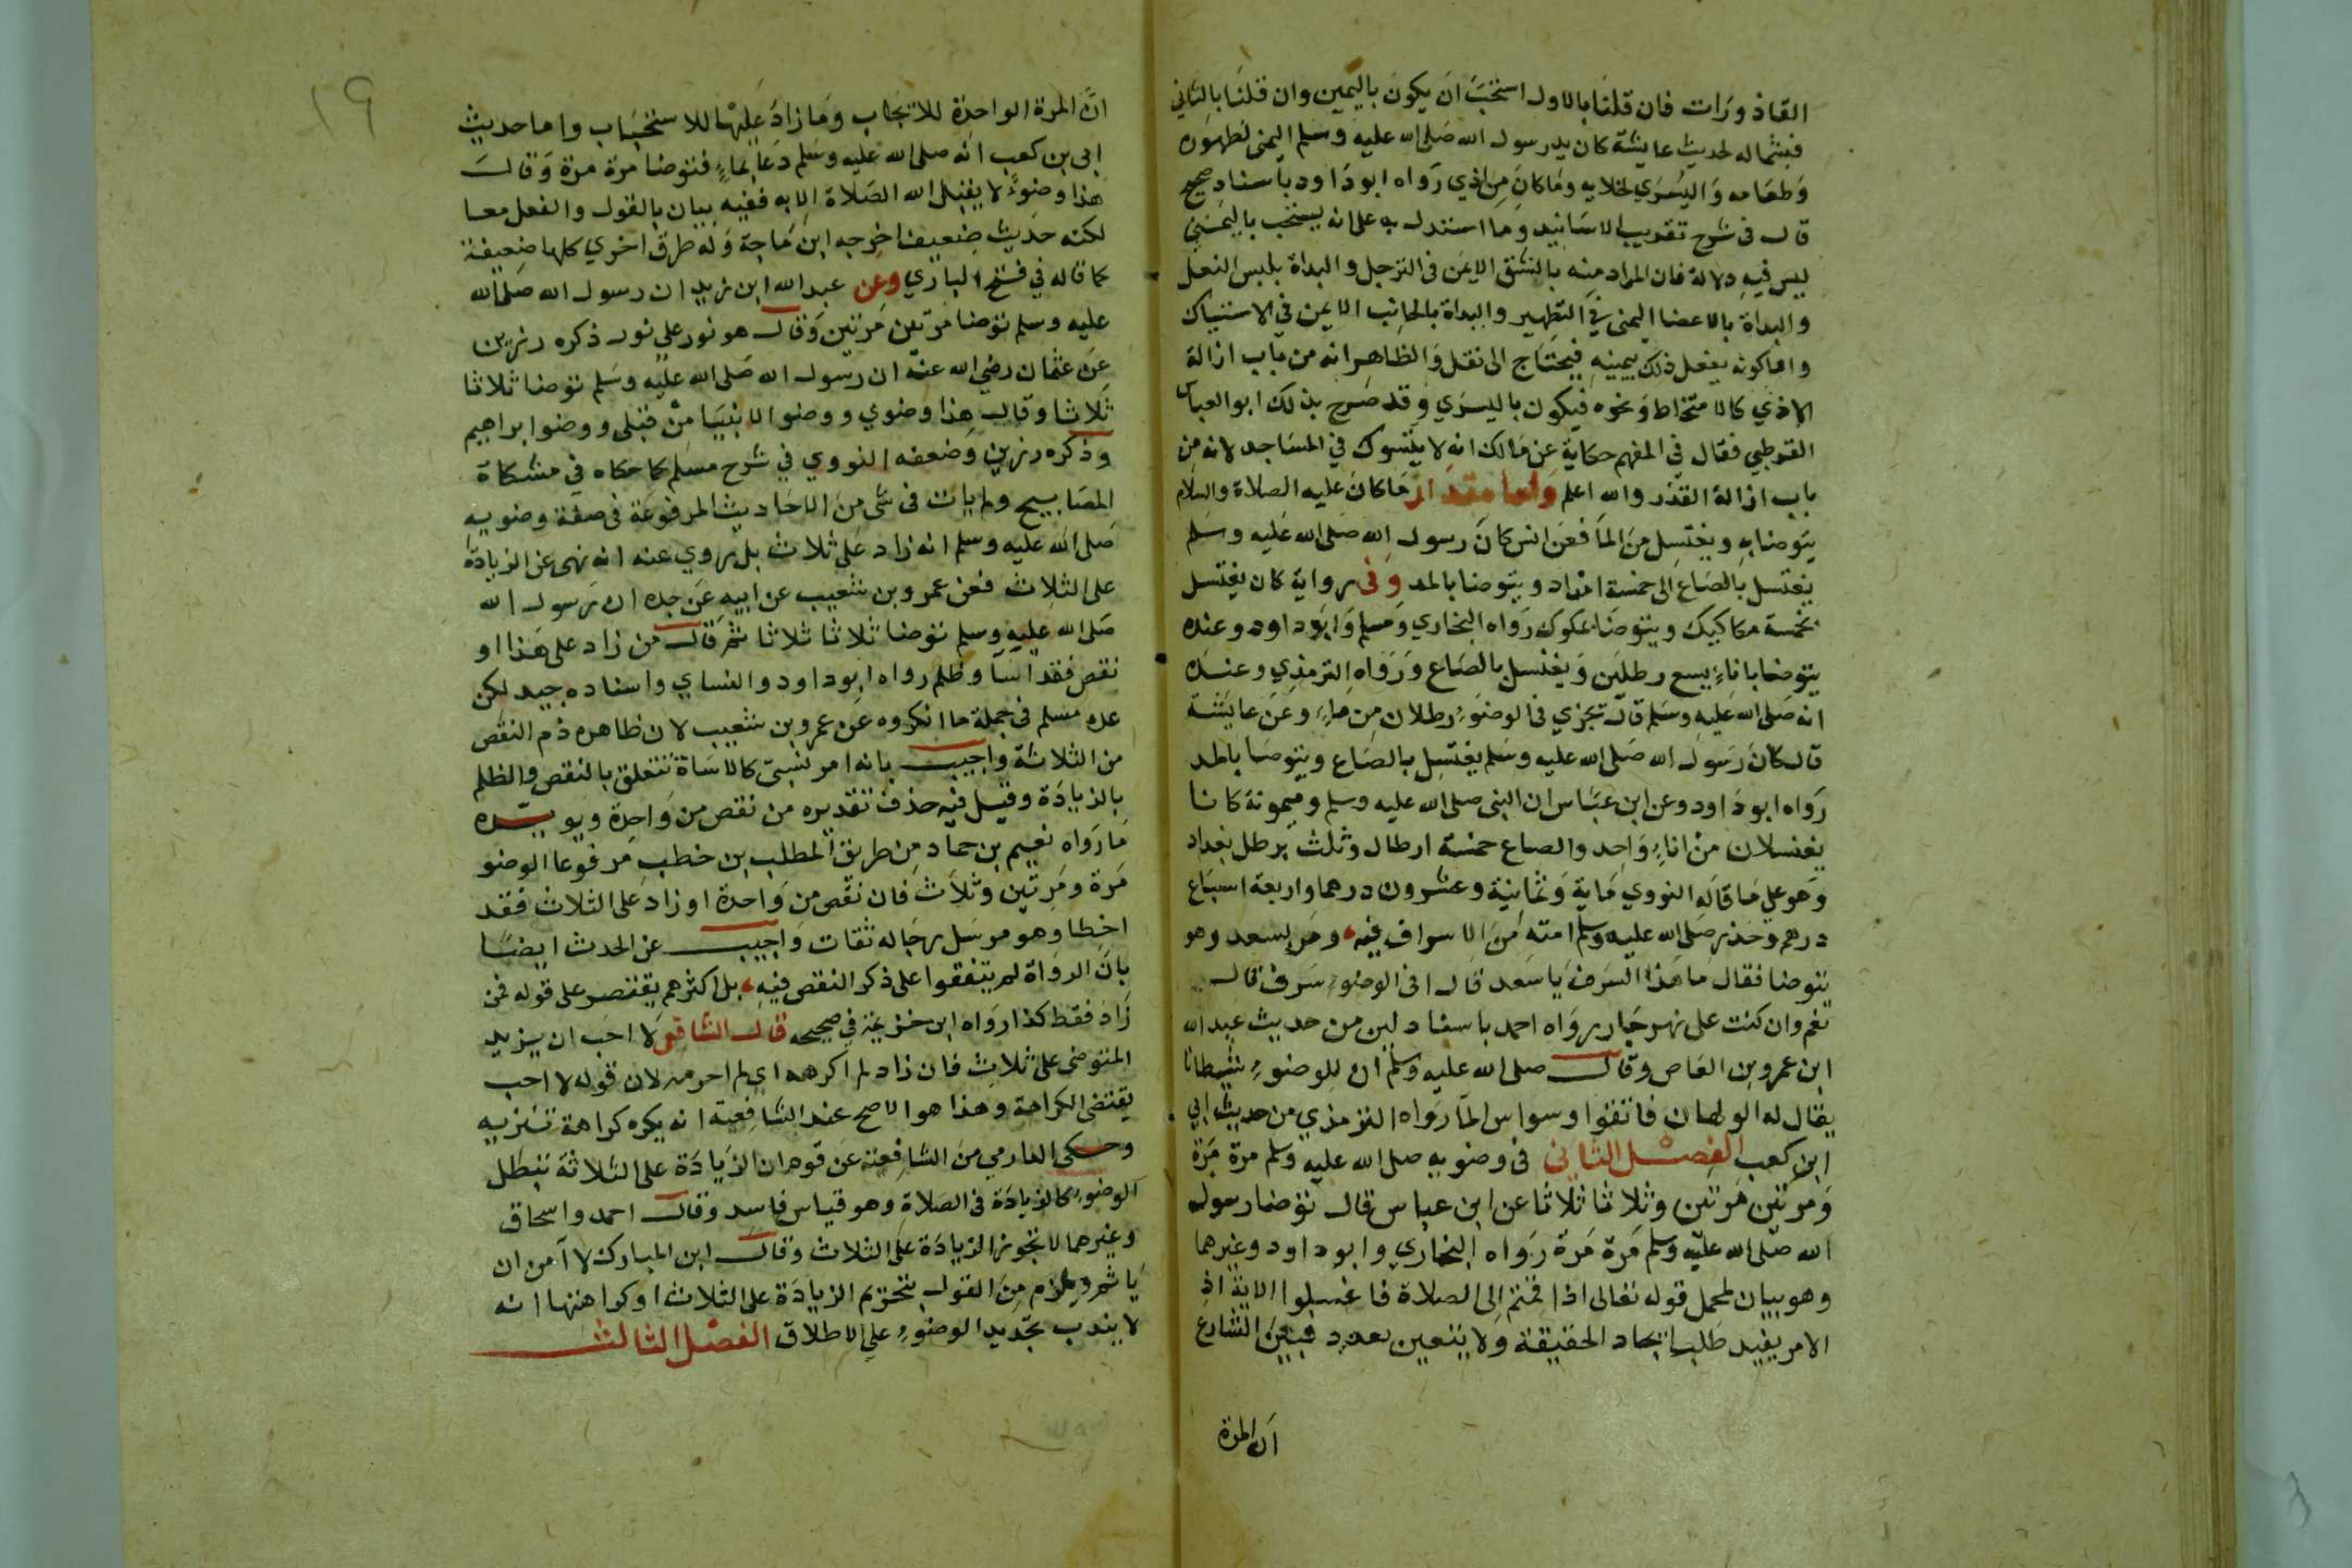 القاذورات فان قلنا بالاول استحب ان يكون باليمين وان قلنا بالثاني
فبشماله لحديث عايشة كان يد رسول الله صلى الله عليه وسلم اليمنى لطهوره
وطعامه واليسري لخلايه وما كان من اذي رواه ابو داود باسناد صحيح
قال في شرح تقريب الاسانيد وما استدل به على انه يستحب باليمنى
ليس فيه دلالة فان المراد منه بالشق الايمن في الترجل والبداة بلبس النعل
والبداة بالاعضا اليمنى في التطهير والبداة بالجانب الايمن في الاستياك
واما كونه يفعل ذلك بيمينه فيحتاج الى نقل والظاهر انه من باب ازالة
الاذي كالامتخاط ونحوه فيكون باليسري وقد صرح بذلك ابو العباس
القرطبي فقال في المفهم حكاية عن مالك انه لا يتسوك في المساجد لانه من
باب ازالة القذر والله اعلم واما مقدار ما كان عليه الصلاة والسلام
يتوضا به ويغتسل من الما فعن انس كان رسول الله صلى الله عليه وسلم
يغتسل بالصاع الى خمسة امداد ويتوضا بالمد وفى رواية كان يغتسل
بخمسة مكاكيك ويتوضا بمكوك رواه البخاري ومسلم وابو داود وعنده
يتوضا باناء يسع رطلين ويغتسل بالصاع ورواه الترمذي وعنده
انه صلى الله عليه وسلم قال تجزي في الوضوء رطلان من ماء وعن عايشة
قال كان رسول الله صلى الله عليه وسلم يغتسل بالصاع ويتوضا بالمد
رواه ابو داود وعن ابن عباس ان النبى صلى الله عليه وسلم وميمونة كانا
يغتسلان من اناء واحد والصاع خمسة ارطال وثلث برطل بغداد
وهو على ما قاله النووي ماية وثمانية وعشرون درهما واربعة اسباع
درهم وحذر صلى الله عليه وسلم امته من الاسراف فيه ومر بسعد وهو
يتوضا فقال ما هذا السرف يا سعد قال افى الوضوء سرف قال
نعم وان كنت على نهر جار رواه احمد باسناد لين من حديث عبد الله
ابن عمرو بن العاص وقال صلى الله عليه وسلم ان للوضوء شيطانا
يقال له الولهان فاتقوا وسواس الما رواه الترمذي من حديث ابي
ابن كعب الفصل الثاني فى وضويه صلى الله عليه وسلم مرة مرة
ومرتين مرتين وثلاثا ثلاثا عن ابن عباس قال توضا رسول
الله صلى الله عليه وسلم مرة مرة رواه البخاري وابو داود وغيرهما
وهو بيان لمجمل قوله تعالى اذا قمتم الى الصلاة فاغسلوا الاية اذ
الامر يفيد طلب ايجاد الحقيقة ولا يتعين بعدد فبين الشارع
ان المرة
١٩
ان المرة الواحدة للايجاب وما زاد عليها للاستحباب واما حديث
ابى بن كعب انه صلى الله عليه وسلم دعا بماء فتوضا مرة مرة وقال
هذا وضوء لا يقبل الله الصلاة الا به ففيه بيان بالقول والفعل معا
لكنه حديث ضعيف اخرجه ابن ماجة وله طرق اخري كلها ضعيفة
كما قاله في فتح الباري وعن عبد الله ابن زيد ان رسول الله صلى الله
عليه وسلم توضا مرتين مرتين وقال هو نور على نور ذكره رزين
عن عثمان رضي الله عنه ان رسول الله صلى الله عليه وسلم توضا ثلاثا
ثلاثا وقال هذا وضوي ووضوا الانبيا من قبلى ووضوا ابراهيم
وذكره رزين وضعفه النووي في شرح مسلم كما حكاه في مشكاة
المصابيح ولم يات فى شى من الاحاديث المرفوعة فى صفة وضويه
صلى الله عليه وسلم انه زاد على ثلاث بل روي عنه انه نهى عن الزيادة
على الثلاث فعن عمرو بن شعيب عن ابيه عن جده ان رسول الله
صلى الله عليه وسلم توضا ثلاثا ثلاثا ثم قال من زاد على هذا او
نقص فقد اسا وظلم رواه ابو داود والنساي واسناده جيد لكن
عده مسلم فى جملة ما انكروه عن عمرو بن شعيب لان ظاهره ذم النقص
من الثلاثة واجيب بانه امر نسبى كالاساة تتعلق بالنقص والظلم
بالزيادة وقيل فيه حذف تقديره من نقص من واحدة ويويده
ما رواه نعيم بن حماد من طريق المطلب بن حنطب مرفوعا الوضو
مرة ومرتين وثلاث فان نقص من واحدة او زاد على الثلاث فقد
اخطا وهو مرسل رجاله ثقات واجيب عن الحدث ايضا
بان الرواة لم يتفقوا على ذكر النقص فيه بل اكثرهم يقتصر على قوله فمن
زاد فقط كذا رواه ابن خزيمة في صحيحه قال الشافعى لا احب ان يزيد
المتوضي على ثلاث فان زاد لم اكرهه اي لم احرمه لان قوله لا احب
يقتضى الكراهة وهذا هو الاصح عند الشافعية انه يكره كراهة تنزيه
وحكى الدارمي من الشافعية عن قوم ان الزيادة على الثلاثة تبطل
الوضوء كالزيادة فى الصلاة وهو قياس فاسد وقال احمد واسحاق
وغيرهما لا تجوز الزيادة على الثلاث وقال ابن المبارك لا آمن ان
ياثم ويلزم من القول بتحريم الزيادة على الثلاث او كراهتها انه
لا يندب تجديد الوضوء على الاطلاق الفصل الثالث